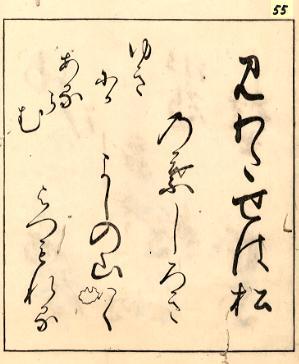 55
見わたせは松
の葉しろき
よしの山いく
よつもれる
ゆき
にか
ある
らむ